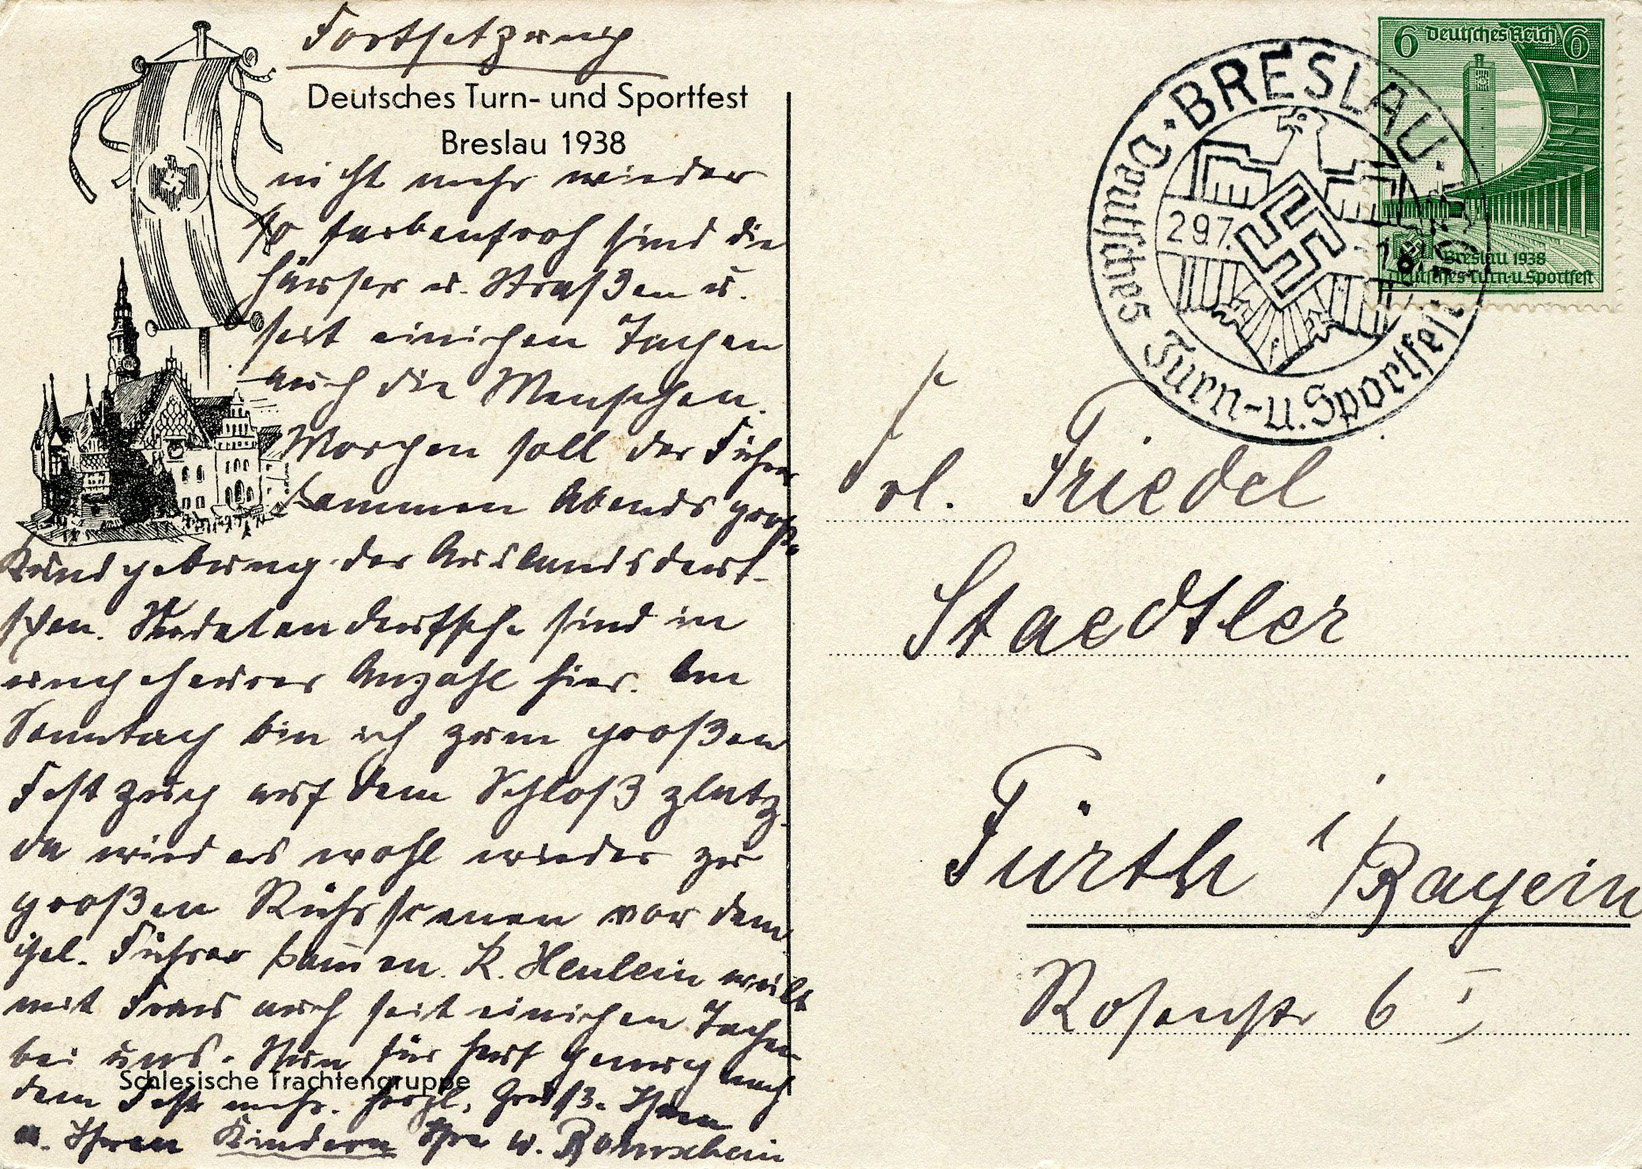 Fortsetzung
Deutsches Turn- und Sportfest
Breslau 1938
nicht mehr wieder
so farbenfroh sind die
Häuser u. Straßen u.
seit einichen Tachen
auch die Menschen.
Morchen soll der Führer
kommen Abends große
Kundgebung der Auslandsdeut-
schen. Sudetendeutsche sind in
ungeheurer Anzahl hier. Am
Sonntach bin ich zum großen
Festzug auf dem Schloßplatz.
da wird es wohl wieder zu
großen vor dem
Führer kommen. K. Henlein weilt
mit Frau auch seit einichen Tachen
bei uns. Nun für heut genug nach
Schlesische Trachtengruppe
dem Fest mehr. Herzl. Grüße Ihnen
u. Ihren Kindern Ihr W.
6 Deutsches Reich 6
Breslau 1938
Deutsches Turn-u. Sportfest
BRESLAU
29.7.
Deutsches Turn-u. Sportfest
Frl. Friedel
Staedtler
Fürth i/Bayein
Rosenstr 6 I